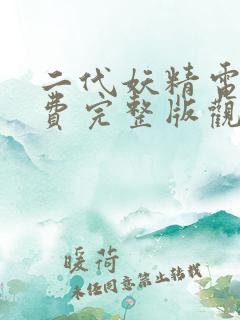 二代妖精電
費完整版觀
暖荷
未经同意禁止转载